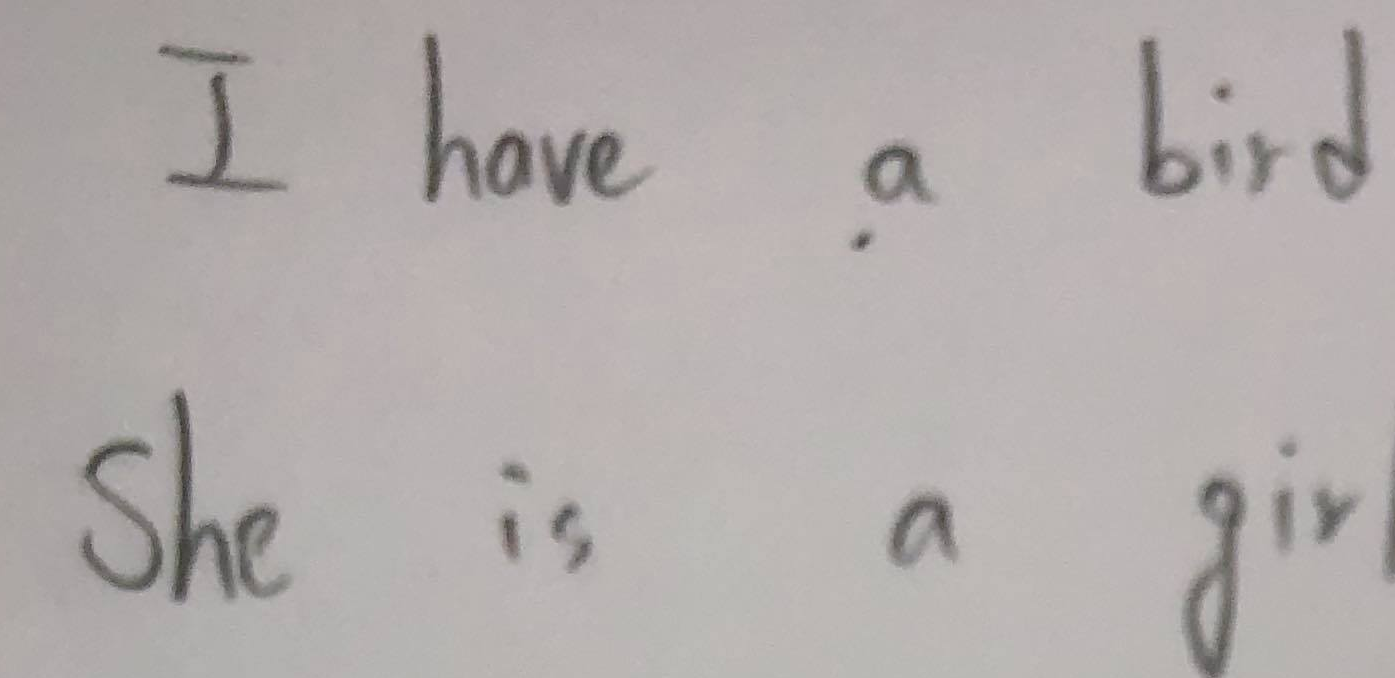 I have a bird
She is a girl